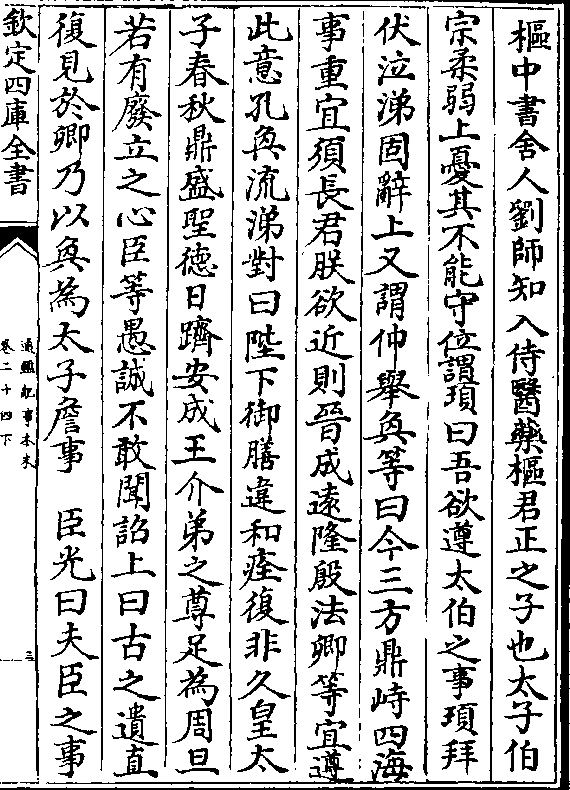 樞中書舍人劉師知入侍醫藥樞君正之子也太子伯
宗柔弱上憂其不能守位謂頊曰吾欲遵太伯之事頊拜
伏泣涕固辭上又謂仲舉奐等曰今三方鼎峙四海
事重宜須長君朕欲近則晉成遠隆殷法卿等宜遵
此意孔奐流涕對曰陛下御膳違和痊復非久皇太
子春秋鼎盛聖德日躋安成王介弟之尊足為周旦
若有廢立之心臣等愚誠不敢聞詔上曰古之遺直
復見於卿乃以奐為太子詹事　臣光曰夫臣之事
欽定四庫全書
通鑑紀事本末
卷二十四下
三